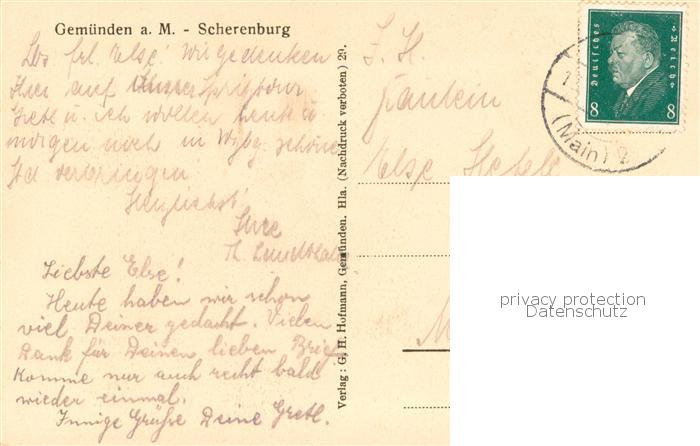 Gemünden a. M. - Scherenburg
Frl. Else! Wir gedenken
Ihrer auf
Gretl u. ich wollen heute u.
morgen noch in Wzbg. schöne
verbringen
Herzlichst
Ihre
Liebste Else!
Heute haben wir schon
viel Deiner gedacht. Vielen
Dank für Deinen lieben Brief.
Komme nur auch recht bald
wieder einmal.
Innige Grüße Deine Gretl.
Verlag: G. H. Hofmann, Gemünden. Hla. (Nachdruck verboten) 29.
Fräulein
Else
Deutsches Reich
8 8
(Main) 2
privacy protection
Datenschutz